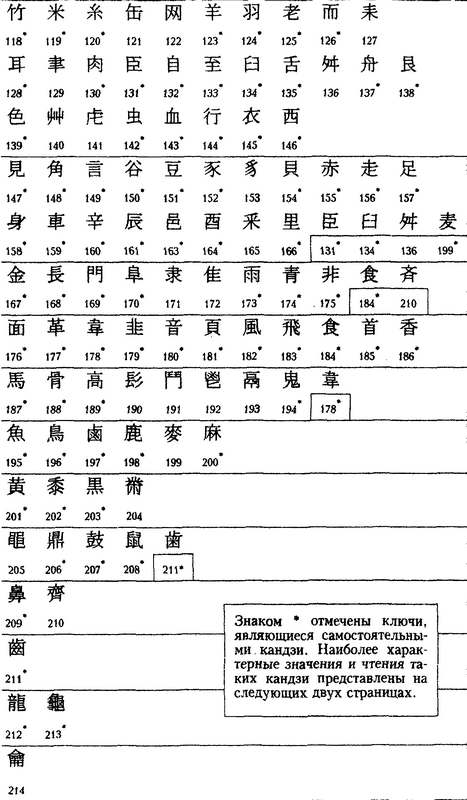 竹 米 糸 缶 网 羊 羽 老 而 耒
118* 119* 120* 121 122 123* 124* 125* 126* 127
耳 聿 肉 臣 自 至 臼 舌 舛 舟 艮
128* 129 130* 131* 132* 133* 134* 135* 136 137* 138*
色 艸 虍 虫 血 行 衣 西
139* 140 141 142* 143* 144* 145* 146*
見 角 言 谷 豆 豕 豸 貝 赤 走 足
147* 148* 149* 150* 151* 152* 153 154* 155* 156* 157*
身 車 辛 辰 邑 酉 釆 里 臣 臼 舛 麦
158* 159* 160* 161* 163* 164* 165 166* 131* 134* 136 199*
金 長 門 阜 隶 隹 雨 青 非 食 斉
167* 168* 169* 170* 171 172 173* 174* 175* 184* 210
面 革 韋 韭 音 頁 風 飛 食 首 香
176* 177* 178* 179* 180* 181* 182* 183* 184* 185* 186*
馬 骨 高 髟 鬥 鬯 鬲 鬼 韋
187* 188* 189* 190 191 192 193 194* 178*
魚 鳥 鹵 鹿 麥 麻
195* 196* 197* 198* 199 200*
黄 黍 黒 黹
201* 202* 203* 204
黽 鼎 鼓 鼠 歯
205 206* 207* 208* 211*
鼻 齊
209* 210
齒
211*
龍 龜
212* 213*
龠
214
Знаком * отмечены ключи,
являющиеся самостоятельны-
ми кандзи. Наиболее харак-
терные значения и чтения та-
ких кандзи представлены на
следующих двух страницах.